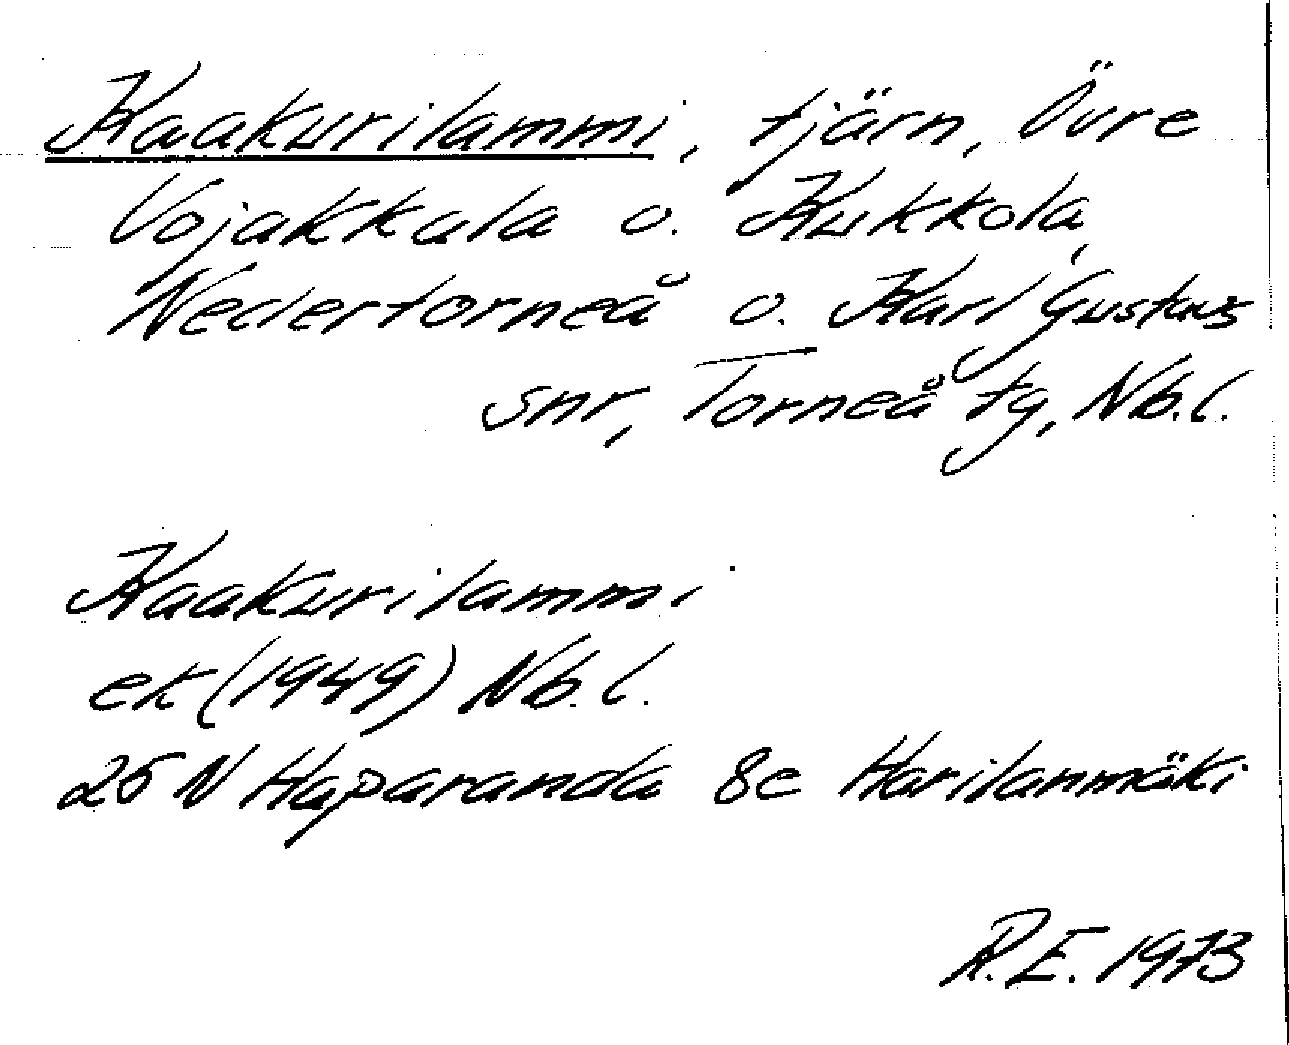 Kaakurilammi, tjärn, Övre
Vojakkala o. Kukkola,
Nedertorneå o. Karl Gustavs
snr, Torneå tg, Nb.l.
Kaakurilammi
ek (1949) Nb.l.
25 N Haparanda 8e Harilanmäki
R.E. 1973